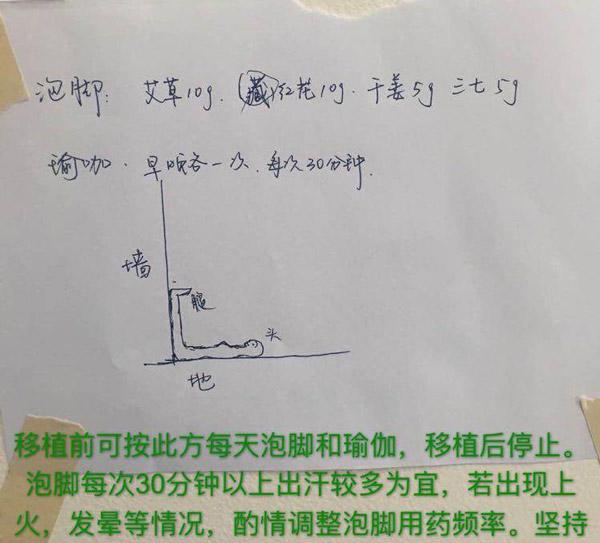 泡脚: 艾草10g. (藏)红花10g. 干姜5g 三七5g
瑜咖. 早晚各一次. 每次30分钟.
墙
腿
头
地
移植前可按此方每天泡脚和瑜伽，移植后停止。
泡脚每次30分钟以上出汗较多为宜，若出现上
火，发晕等情况，酌情调整泡脚用药频率。坚持